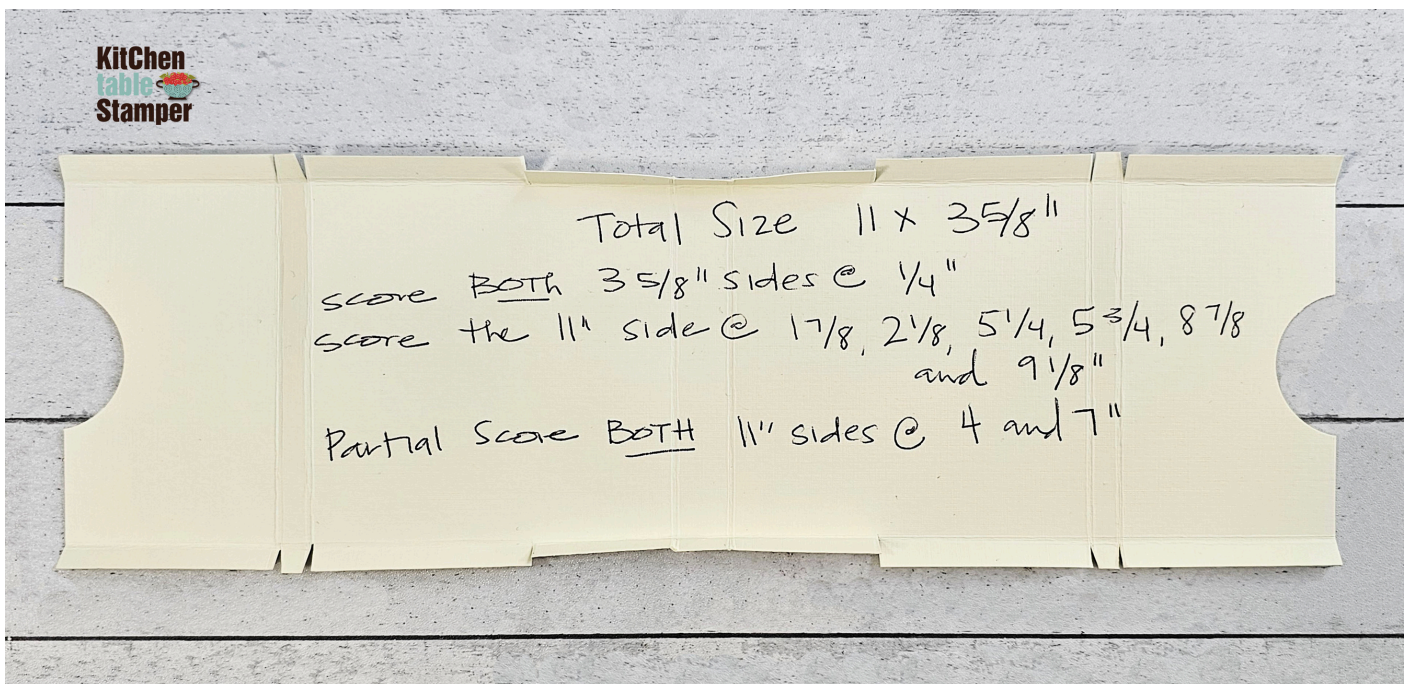 KitChen
table
Stamper
Total Size 11 x 3 5/8"
score BOTH 3 5/8" sides @ 1/4"
score the 11" side @ 1 7/8, 2 1/8, 5 1/4, 5 3/4, 8 7/8
and 9 1/8"
Partial Score BOTH 11" sides @ 4 and 7"